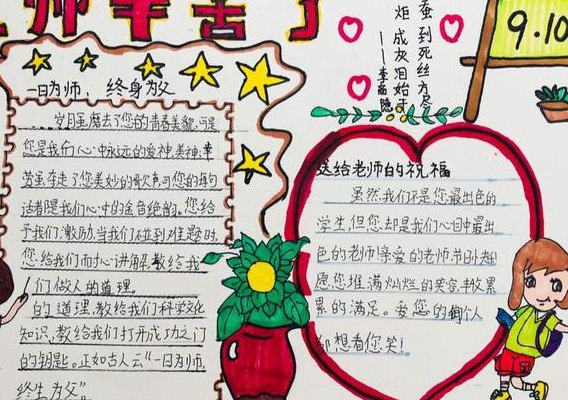 师辛苦了
一日为师，终身为父
岁月虽磨去了您的青春美貌,可是
您是我们心中永远的爱神,美神;辛
劳虽夺走了您美妙的歌声,可您的每句
话者阝是我们心中的金音绝响。您给
予我们激励,当我们碰到难题时
您给我们而心讲解,教给我
们做人的道理。
的道理,教给我们科学文化
知识,教给我们打开成功之门
的钥匙。正如古人云“一日为师
终生为父”。
蚕到死丝方尽
炬成灰泪始干
——李商隐
9.10
送给老师的祝福
虽然我们不是您最出色的
学生,但您却是我们心目中最出
色的老师!亲爱的老师,节日
愿您堆满灿烂的笑容,丰收累
累的满足。爱您的每个人
都想看您笑!